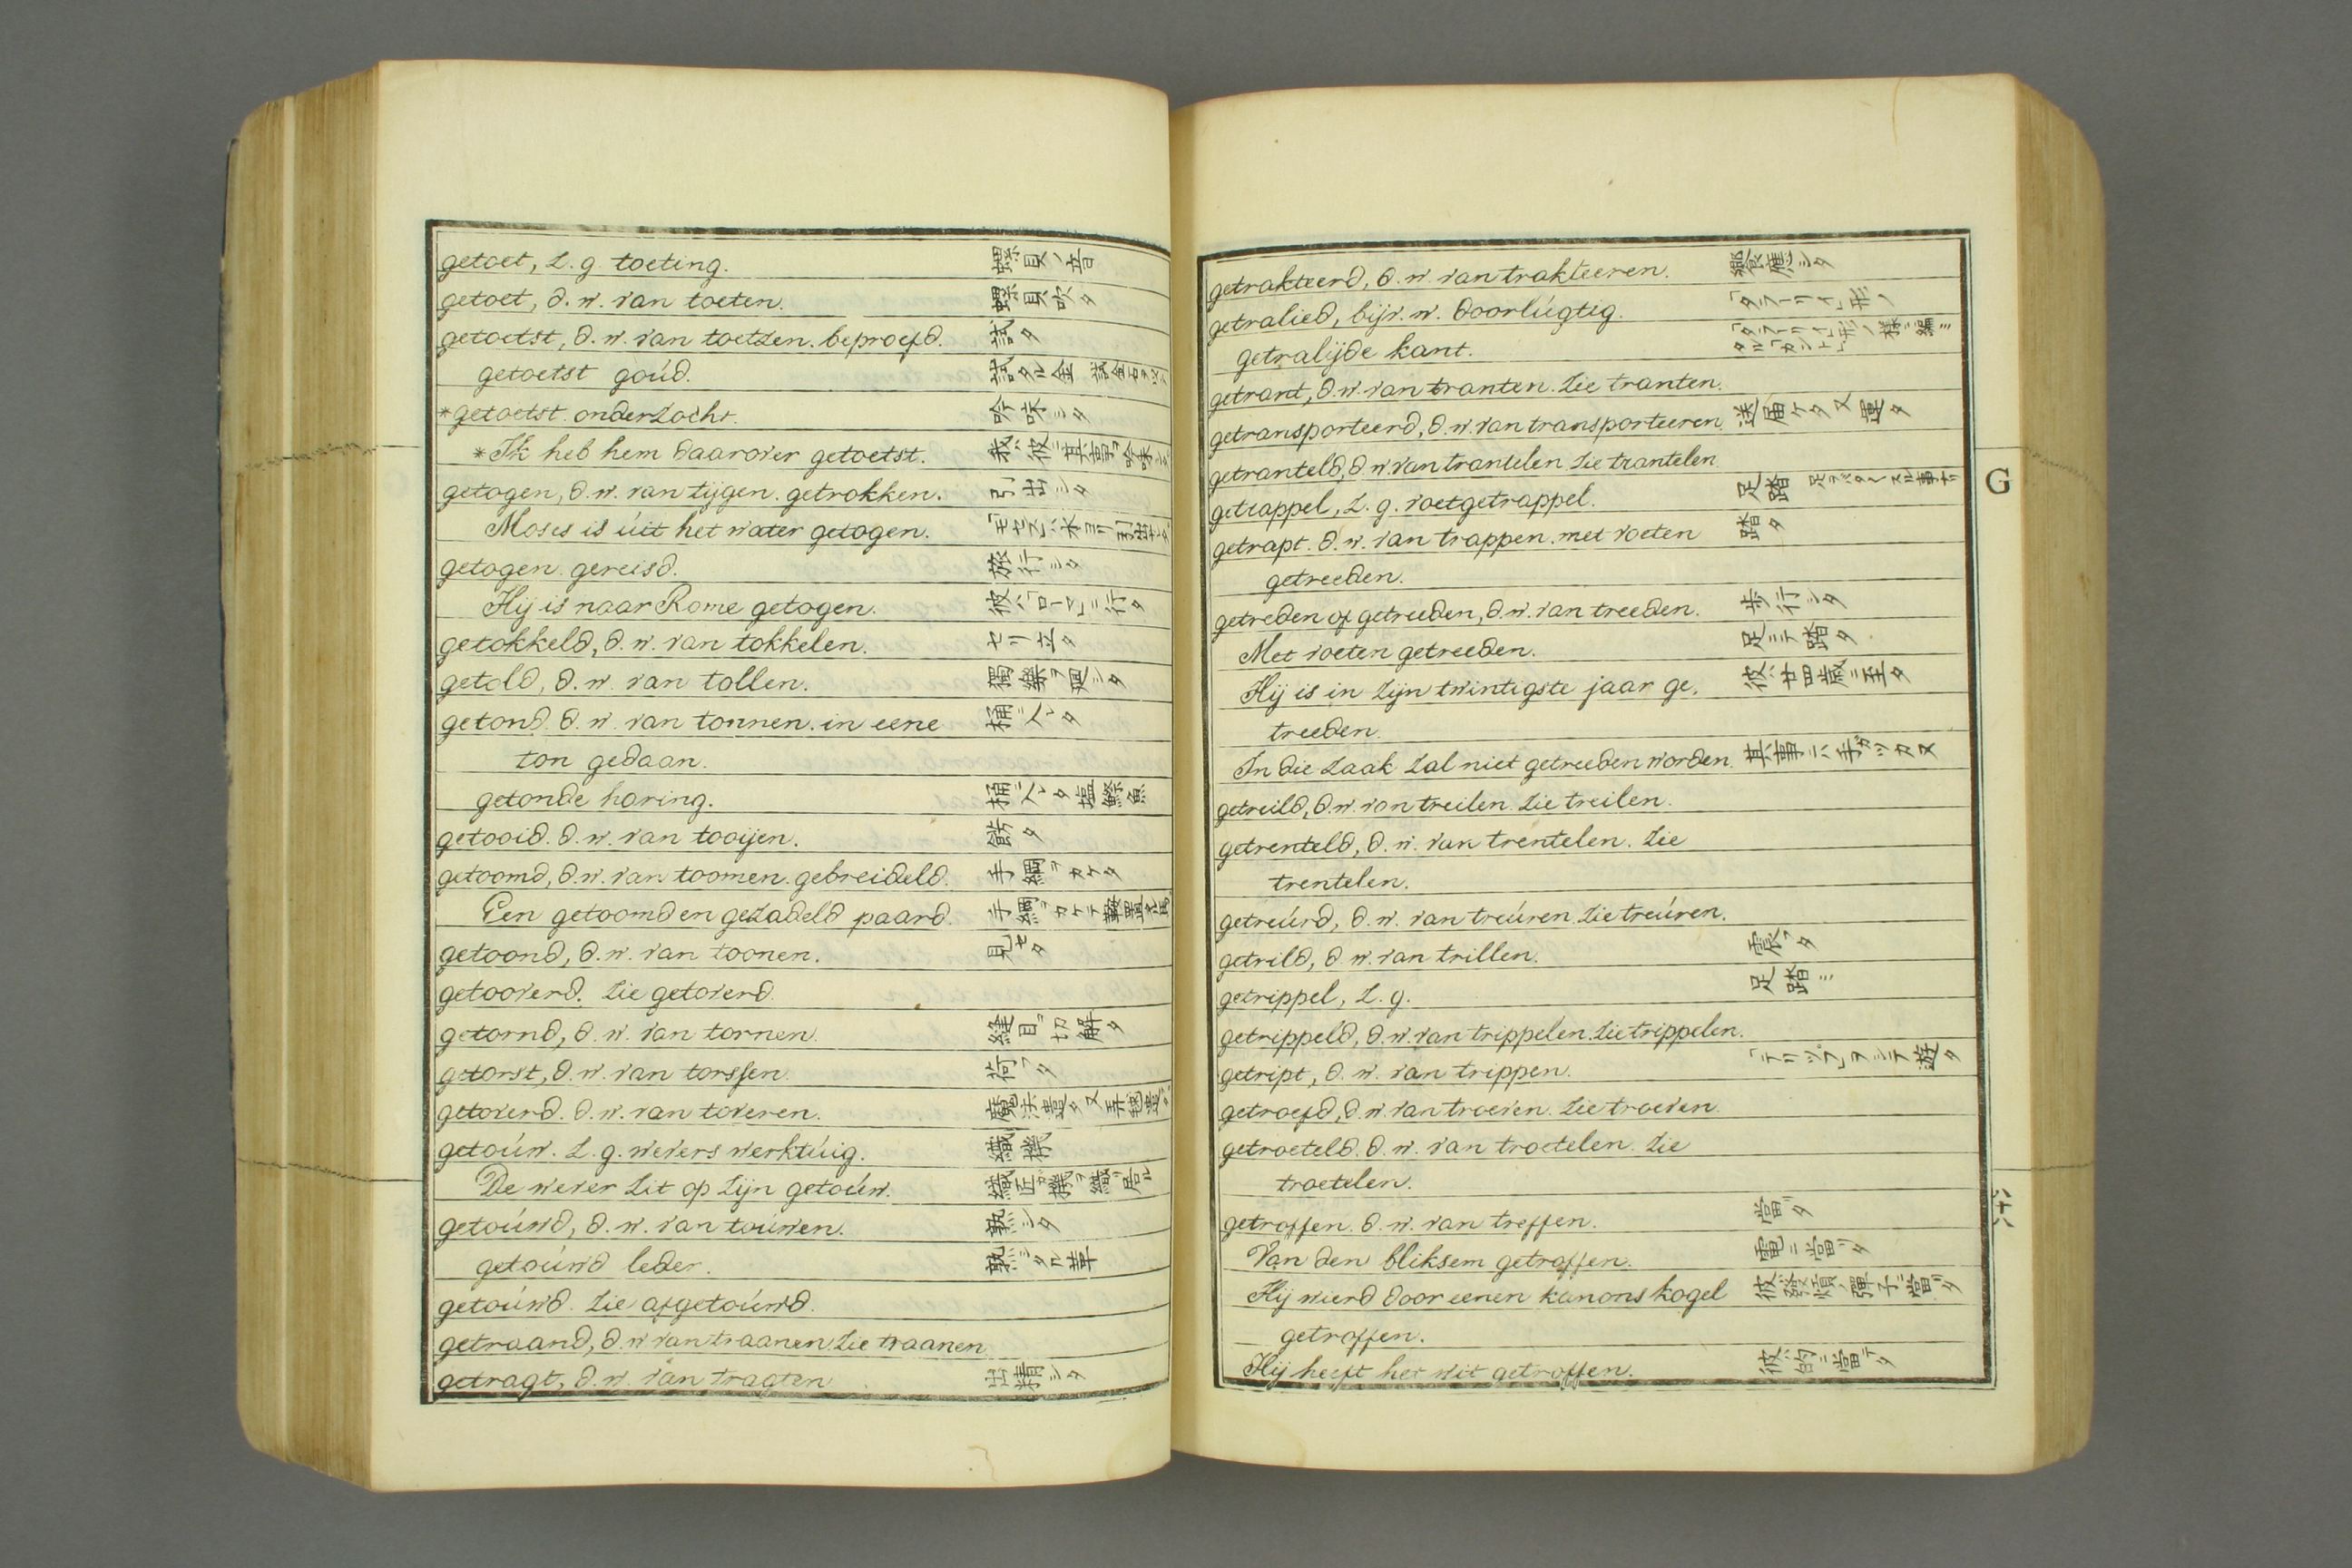 getoet, z. g. toeting. 螺貝ノ音
getoet, d. w. van toeten. 螺貝吹タ
getoetst, d. w. van toetzen. beproefd. 試タ
getoetst goúd. 試タル金
*getoetst. onderzocht. 吟味シタ
*Ik heb hem daarover getoetst. 我ガ彼ヲ其事ヲ吟味シタ
getogen, d. w. van tijgen. getrokken. 引出シタ
Moses is úit het water getogen. 「モセス」ハ水ヨリ引出サレタ
getogen. gereisd. 旅行シタ
Hij is naar Rome getogen. 彼ハ「ローマ」ニ行タ
getokkeld, d. w. van tokkelen. セリ立タ
getold, d. w. van tollen. 獨樂ヲ廻シタ
getond. d. w. van tonnen. in eene 桶ニ入レタ
ton gedaan.
getonde haring. 桶ニ入レタ塩鰶魚
getooid. d. w. van tooijen. 餝タ
getoomd, d. w. van toomen. gebreideld. 手綱ヲカケタ
Een getoomd en gezadeld paard. 手綱ヲカケテ鞍置タル馬
getoond, d. w. van toonen. 見セタ
getooverd. zie getoverd.
getornd, d. w. van tornen. 縫目ヲ切解タ
getorst, d. w. van torssen. 荷フタ
getoverd. d. w. van toveren. 魔法遣タ又
getoúw. z. g. wevers werktúig. 織機
De wever zit op zijn getoúw. 織匠ガ機ヲ織リ居ル
getoúwd, d. w. van toúwen. 熟シタ
getoúwd leder. 熟シタル革
getoúwd. zie afgetoúwd.
getraand, d. w. van traanen. zie traanen.
getragt, d. w. van tragten 出精シタ
getrakteerd, d. w. van trakteeren. 饗應シタ
getralied, bijv. w. doorlúgtig. 「タラーリイ」形ノ
getralijde kant. 「タラーリイ」形ノ様ニ編ミタル「カント」
getrant, d. w. van tranten. zie tranten.
getransporteerd, d. w. van transporteeren. 送届ケタ又運タ
getranteld, d. w. van trantelen. zie trantelen
getrappel, z. g. voetgetrappel. 足踏
getrapt. d. w. van trappen. met voeten 踏タ
getreeden.
getreden of getreeden, d. w. van treeden. 歩行シタ
Met voeten getreeden. 足ニテ踏タ
Hij is in zijn twintigste jaar ge. 彼ハ廿四歳ニ至タ
treeden.
In die zaak zal niet getreeden worden. 其事ニハ手ガツカヌ
getreild, d. w. van treilen. zie treilen.
getrenteld, d. w. van trentelen. zie
trentelen.
getreúrd, d. w. van treúren. zie treúren.
getrild, d. w. van trillen. 震フタ
getrippel, z. g. 足踏ミ
getrippeld, d. w. van trippelen. zie trippelen.
getript, d. w. van trippen. 「テリップ」ヲシテ遊タ
getroefd, d. w. van troeven. zie troeven.
getroeteld. d. w. van troetelen. zie
troetelen.
getroffen. d. w. van treffen. 當リタ
Van den bliksem getroffen. 電ニ當リタ
Hij wierd door eenen kanons kogel 彼ガ發熕ノ彈子ニ當リタ
getroffen.
Hij heeft het wit getroffen. 彼ガ的ニ當テタ
G